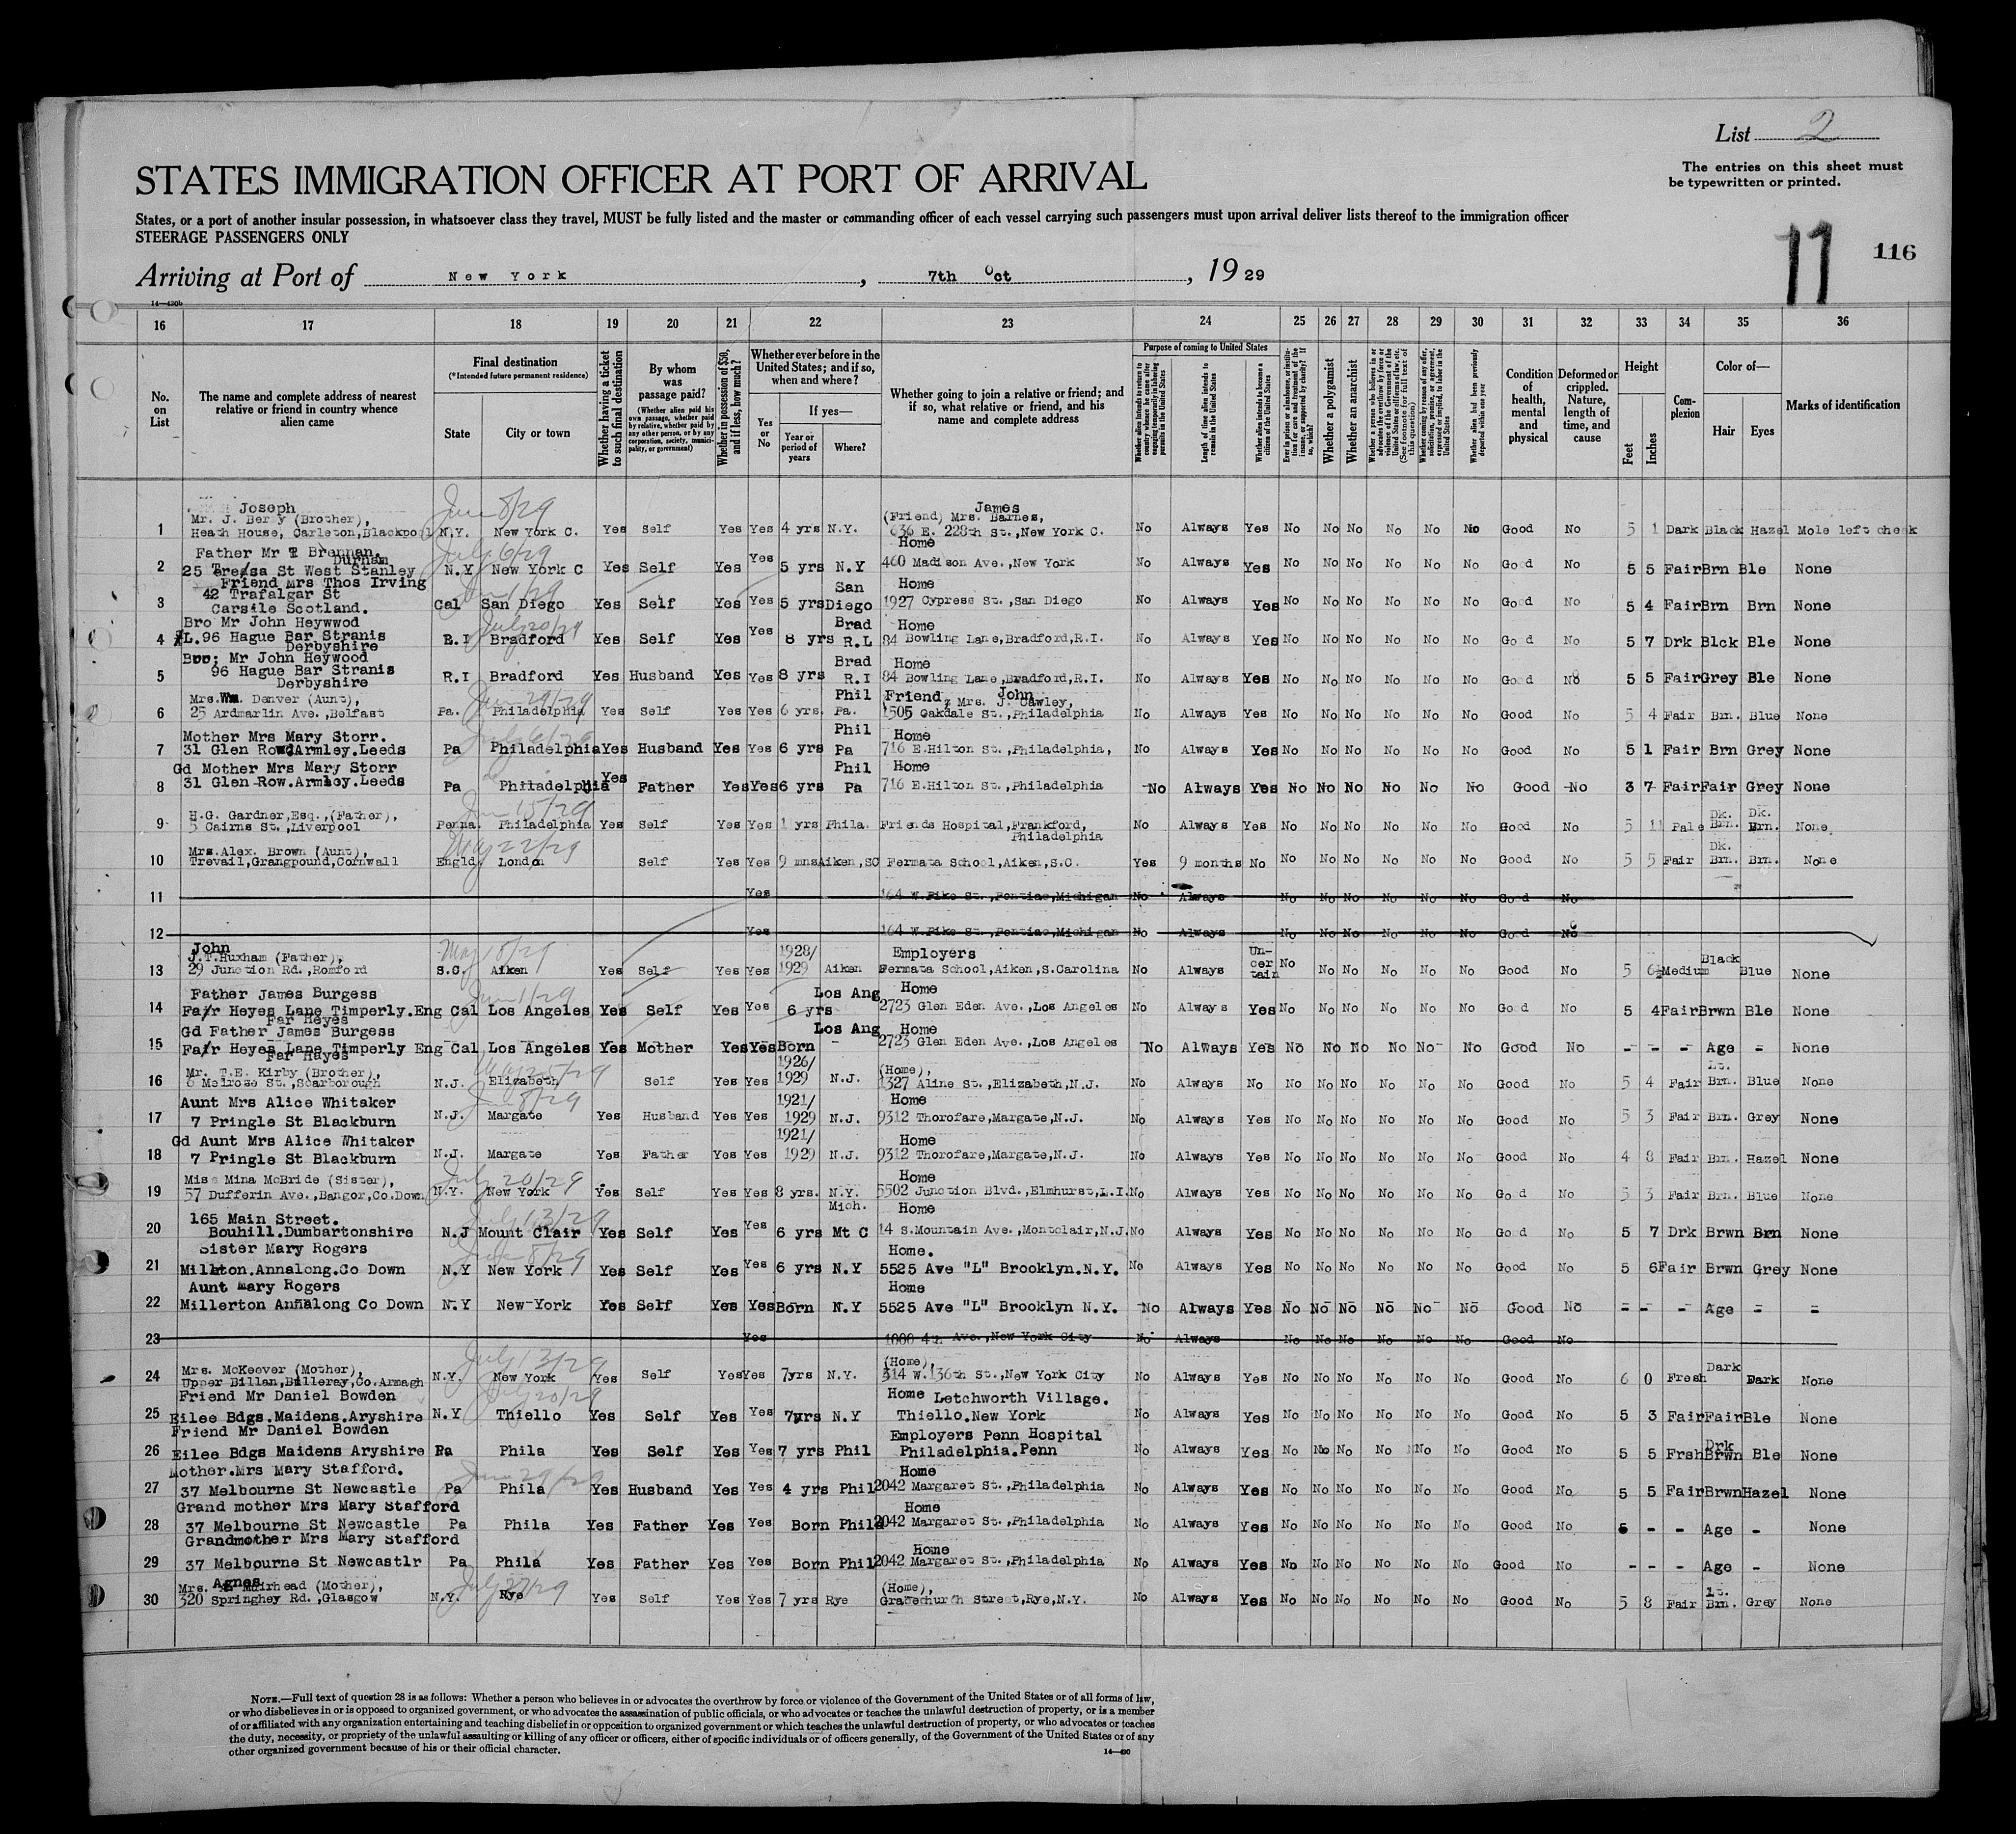 List 2
The entries on this sheet must
be typewritten or printed.
STATES IMMIGRATION OFFICER AT PORT OF ARRIVAL
States, or a port of another insular possession, in whatsoever class they travel, MUST be fully listed and the master or commanding officer of each vessel carrying such passengers must upon arrival deliver lists thereof to the immigration officer
STEERAGE PASSENGERS ONLY
11 116
Arriving at Port of New York, 7th Oct, 19 29
14—430b
16 17 18 19 20 21 22 23 24 25 26 27 28 29 30 31 32 33 34 35 36
No. on List
The name and complete address of nearest relative or friend in country whence alien came
Final destination
(*Intended future permanent residence)
State
City or town
Whether having a ticket to such final destination
By whom was passage paid?
(Whether alien paid his own passage, whether paid by relative, whether paid by any other person, or by any corporation, society, municipality, or government)
Whether in possession of $50, and if less, how much?
Whether ever before in the United States; and if so, when and where?
Yes or No
If yes—
Year or period of years
Where?
Whether going to join a relative or friend; and if so, what relative or friend, and his name and complete address
Purpose of coming to United States
Whether alien intends to return to country whence he came after engaging temporarily in laboring pursuits in the United States
Length of time alien intends to remain in the United States
Whether alien intends to become a citizen of the United States
Ever in prison or almshouse, or institution for care and treatment of the insane, or supported by charity? If so, which?
Whether a polygamist
Whether an anarchist
Whether a person who believes in or advocates the overthrow by force or violence of the Government of the United States or all forms of law, etc. (See footnote for full text of this question)
Whether coming by reason of any offer, solicitation, promise, or agreement, expressed or implied, to labor in the United States
Whether alien had been previously deported within one year
Condition of health, mental and physical
Deformed or crippled. Nature, length of time, and cause
Height
Feet
Inches
Complexion
Color of—
Hair
Eyes
Marks of identification
Joseph June 8/29 James
Mr. J. Berry (Brother), (Friend) Mrs. Barnes,
1 Heath House, Carleton,Blackpool N.Y. New York C. Yes Self Yes Yes 4 yrs N.Y. 636 E. 228th St.,New York C. No Always Yes No No No No No No Good No 5 1 Dark Black Hazel Mole left cheek
Father Mr T Brennan. July 6/29 Home
Durham
2 25 Teresa St West Stanley N.Y New York C Yes Self Yes Yes 5 yrs N.Y 460 Madison Ave.,New York No Always Yes No No No No No No Good No 5 5 Fair Brn Ble None
Friend Mrs Thos Irving San Home
42 Trafalgar St June 1/29
3 Carsile Scotland. Cal San Diego Yes Self Yes Yes 5 yrs Diego 1927 Cypress St.,San Diego No Always Yes No No No No No No Good No 5 4 Fair Brn Brn None
Bro Mr John Heywwod July 20/29 Brad Home
4 L.96 Hague Bar Stranis R.I Bradford Yes Self Yes Yes 8 yrs R.L 84 Bowling Lane,Bradford,R.I. No Always Yes No No No No No No Good No 5 7 Drk Blck Ble None
Derbyshire
Bro: Mr John Heywood Brad Home
5 96 Hague Bar Stranis R.I Bradford Yes Husband Yes Yes 8 yrs R.I 84 Bowling Lane,Bradford,R.I. No Always Yes No No No No No No Good No 5 5 Fair Grey Ble None
Derbyshire
Mrs.Wm. Denver (Aunt), June 29/29 Phil Friend, Mrs. J. Cawley, John
6 25 Ardmarlin Ave.,Belfast Pa. Philadelphia Yes Self Yes Yes 6 yrs. Pa. 1505 Oakdale St.,Philadelphia No Always Yes No No No No No No Good No 5 4 Fair Brn. Blue None
Mother Mrs Mary Storr. July 6/29 Phil Home
7 31 Glen Row Armley.Leeds Pa Philadelphia Yes Husband Yes Yes 6 yrs Pa 716 E.Hilton St.,Philadelphia, No Always Yes No No No No No No Good No 5 1 Fair Brn Grey None
Gd Mother Mrs Mary Storr Phil Home
8 31 Glen Row.Armley.Leeds Pa Philadelphia Yes Father Yes Yes 6 yrs Pa 716 E.Hilton St.,Philadelphia No Always Yes No No No No No No Good No 3 7 Fair Fair Grey None
H.G. Gardner,Esq.,(Father), June 15/29 Dk. Dk.
9 5 Cairns St.,Liverpool Penna. Philadelphia Yes Self Yes Yes 1 yrs Phila. Friends Hospital,Frankford, No Always Yes No No No No No No Good No 5 11 Pale Brn. Brn. None
Philadelphia
Mrs.Alex. Brown (Aunt), May 22/29 Dk.
10 Trevail,Grangpound,Cornwall Engld. London Self Yes Yes 9 mns Aiken,SC Fermata School,Aiken,S.C. Yes 9 months No No No No No No No Good No 5 5 Fair Brn. Brn. None
11 Yes 164 W.Pike St.,Pontiac,Michigan No Always No No No No No No Good No
12 Yes 164 W.Pike St.,Pontiac,Michigan No Always No No No No No No Good No
John May 18/29 1928/ Employers Uncertain Black
J.T.Huxham (Father),
13 29 Junction Rd.,Romford S.C. Aiken Yes Self Yes Yes 1929 Aiken Fermata School,Aiken,S.Carolina No Always No No No No No No Good No 5 6½ Medium Blue None
Father James Burgess June 1/29 Los Ang Home
14 Fair Heyes Lane Timperly.Eng Cal Los Angeles Yes Self Yes Yes 6 yrs 2723 Glen Eden Ave.,Los Angeles No Always Yes No No No No No No Good No 5 4 Fair Brwn Ble None
Far Heyes
Gd Father James Burgess Los Ang Home
15 Fair Heyes Lane Timperly Eng Cal Los Angeles Yes Mother Yes Yes Born - 2723 Glen Eden Ave.,Los Angeles No Always Yes No No No No No No Good No - - - Age - None
Far Hayes
Mr. T.E. Kirby (Brother), 1926/ (Home), Lt.
16 6 Melrose St.,Scarborough N.J. Elizabeth Self Yes Yes 1929 N.J. 1327 Aline St.,Elizabeth,N.J. No Always No No No No No No No Good No 5 4 Fair Brn. Blue None
Aunt Mrs Alice Whitaker June 8/29 1921/ Home
17 7 Pringle St Blackburn N.J. Margate Yes Husband Yes Yes 1929 N.J. 9312 Thorofare,Margate,N.J. No Always Yes No No No No No No Good No 5 3 Fair Brn. Grey None
Gd Aunt Mrs Alice Whitaker 1921/ Home
18 7 Pringle St Blackburn N.J. Margate Yes Father Yes Yes 1929 N.J. 9312 Thorofare,Margate,N.J. No Always Yes No No No No No No Good No 4 8 Fair Brn. Hazel None
Miss Mina McBride (Sister), July 20/29 Home
19 57 Dufferin Ave.,Bangor,Co.Down N.Y. New York Yes Self Yes Yes 8 yrs. N.Y. 5502 Junction Blvd.,Elmhurst,L.I. No Always Yes No No No No No No Good No 5 3 Fair Brn. Blue None
165 Main Street. July 13/29 Mich. Home
20 Bouhill.Dumbartonshire N.J Mount Clair Yes Self Yes Yes 6 yrs Mt C 14 S.Mountain Ave.,Montclair,N.J. No Always Yes No No No No No No Good No 5 7 Drk Brwn Brn None
Sister Mary Rogers June 8/29 Home.
21 Millton.Annalong.Co Down N.Y New York Yes Self Yes Yes 6 yrs N.Y 5525 Ave "L" Brooklyn.N.Y. No Always Yes No No No No No No Good No 5 6 Fair Brwn Grey None
Aunt Mary Rogers Home
22 Millerton Annalong Co Down N.Y New York Yes Self Yes Yes Born N.Y 5525 Ave "L" Brooklyn N.Y. No Always Yes No No No No No No Good No - - - Age - -
23 Yes 1000 4th Ave.,New York City No Always No No No No No No Good No
Mrs. McKeever (Mother), July 13/29 (Home), Dark
24 Upper Billan,Bulleray,Co.Armagh N.Y. New York Yes Self Yes Yes 7yrs N.Y. 514 W.136th St.,New York City No Always Yes No No No No No No Good No 6 0 Fresh Dark None
Friend Mr Daniel Bowden July 20/29 Home Letchworth Village.
25 Eilee Bdgs.Maidens.Aryshire N.Y Thiello Yes Self Yes Yes 7yrs N.Y Thiello.New York No Always Yes No No No No No No Good No 5 3 Fair Fair Ble None
Friend Mr Daniel Bowden Employers Penn Hospital Drk
26 Eilee Bdgs Maidens Aryshire Pa Phila Yes Self Yes Yes 7 yrs Phil Philadelphia.Penn No Always Yes No No No No No No Good No 5 5 Frsh Brwn Ble None
Mother.Mrs Mary Stafford. June 29/29 Home
27 37 Melbourne St Newcastle Pa Phila Yes Husband Yes Yes 4 yrs Phil 2042 Margaret St.,Philadelphia No Always Yes No No No No No No Good No 5 5 Fair Brwn Hazel None
Grand mother Mrs Mary Stafford Home
28 37 Melbourne St Newcastle Pa Phila Yes Father Yes Yes Born Phila 2042 Margaret St.,Philadelphia No Always Yes No No No No No No Good No - - Age - None
Grandmother Mrs Mary Stafford Home
29 37 Melbourne St Newcastlr Pa Phila Yes Father Yes Yes Born Phil 2042 Margaret St.,Philadelphia No Always Yes No No No No No No Good No - - - Age - None
Mrs. Agnes Muirhead (Mother), July 27/29 (Home), Lt.
30 320 Springhey Rd.,Glasgow N.Y. Rye Yes Self Yes Yes 7 yrs Rye Gracechurch Street,Rye,N.Y. No Always Yes No No No No No No Good No 5 8 Fair Brn. Grey None
NOTE.—Full text of question 28 is as follows: Whether a person who believes in or advocates the overthrow by force or violence of the Government of the United States or of all forms of law,
or who disbelieves in or is opposed to organized government, or who advocates the assassination of public officials, or who advocates or teaches the unlawful destruction of property, or is a member
of or affiliated with any organization entertaining and teaching disbelief in or opposition to organized government or which teaches the unlawful destruction of property, or who advocates or teaches
the duty, necessity, or propriety of the unlawful assaulting or killing of any officer or officers, either of specific individuals or of officers generally, of the Government of the United States or of any
other organized government because of his or their official character.
14—430